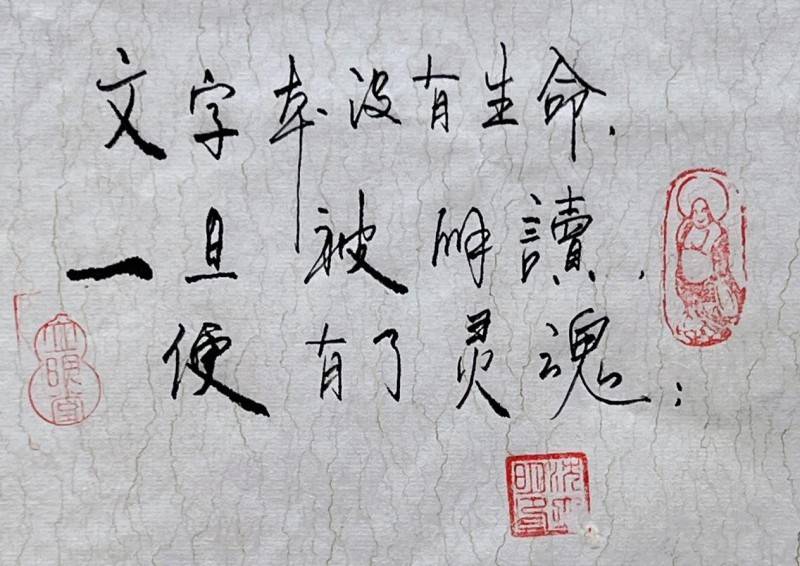 文字本没有生命.
一旦被解讀.
便有了灵魂;